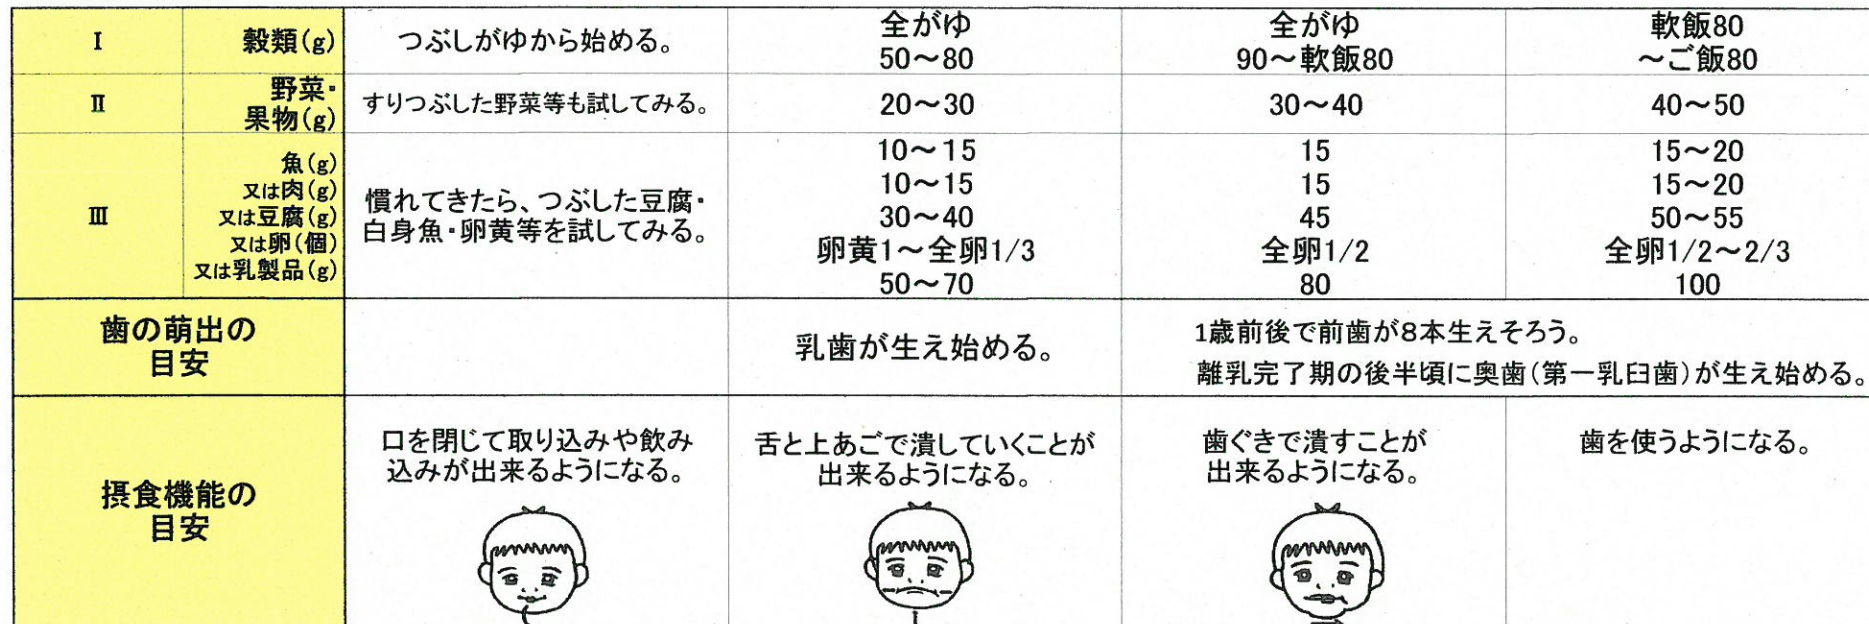 Ⅰ
穀類(g)
つぶしがゆから始める。
全がゆ
50～80
全がゆ
90～軟飯80
軟飯80
～ご飯80
Ⅱ
野菜・
果物(g)
すりつぶした野菜等も試してみる。
20～30
30～40
40～50
Ⅲ
魚(g)
又は肉(g)
又は豆腐(g)
又は卵(個)
又は乳製品(g)
慣れてきたら、つぶした豆腐・
白身魚・卵黄等を試してみる。
10～15
10～15
30～40
卵黄1～全卵1/3
50～70
15
15
45
全卵1/2
80
15～20
15～20
50～55
全卵1/2～2/3
100
歯の萌出の
目安
乳歯が生え始める。
1歳前後で前歯が8本生えそろう。
離乳完了期の後半頃に奥歯(第一乳臼歯)が生え始める。
摂食機能の
目安
口を閉じて取り込みや飲み
込みが出来るようになる。
舌と上あごで潰していくことが
出来るようになる。
歯ぐきで潰すことが
出来るようになる。
歯を使うようになる。